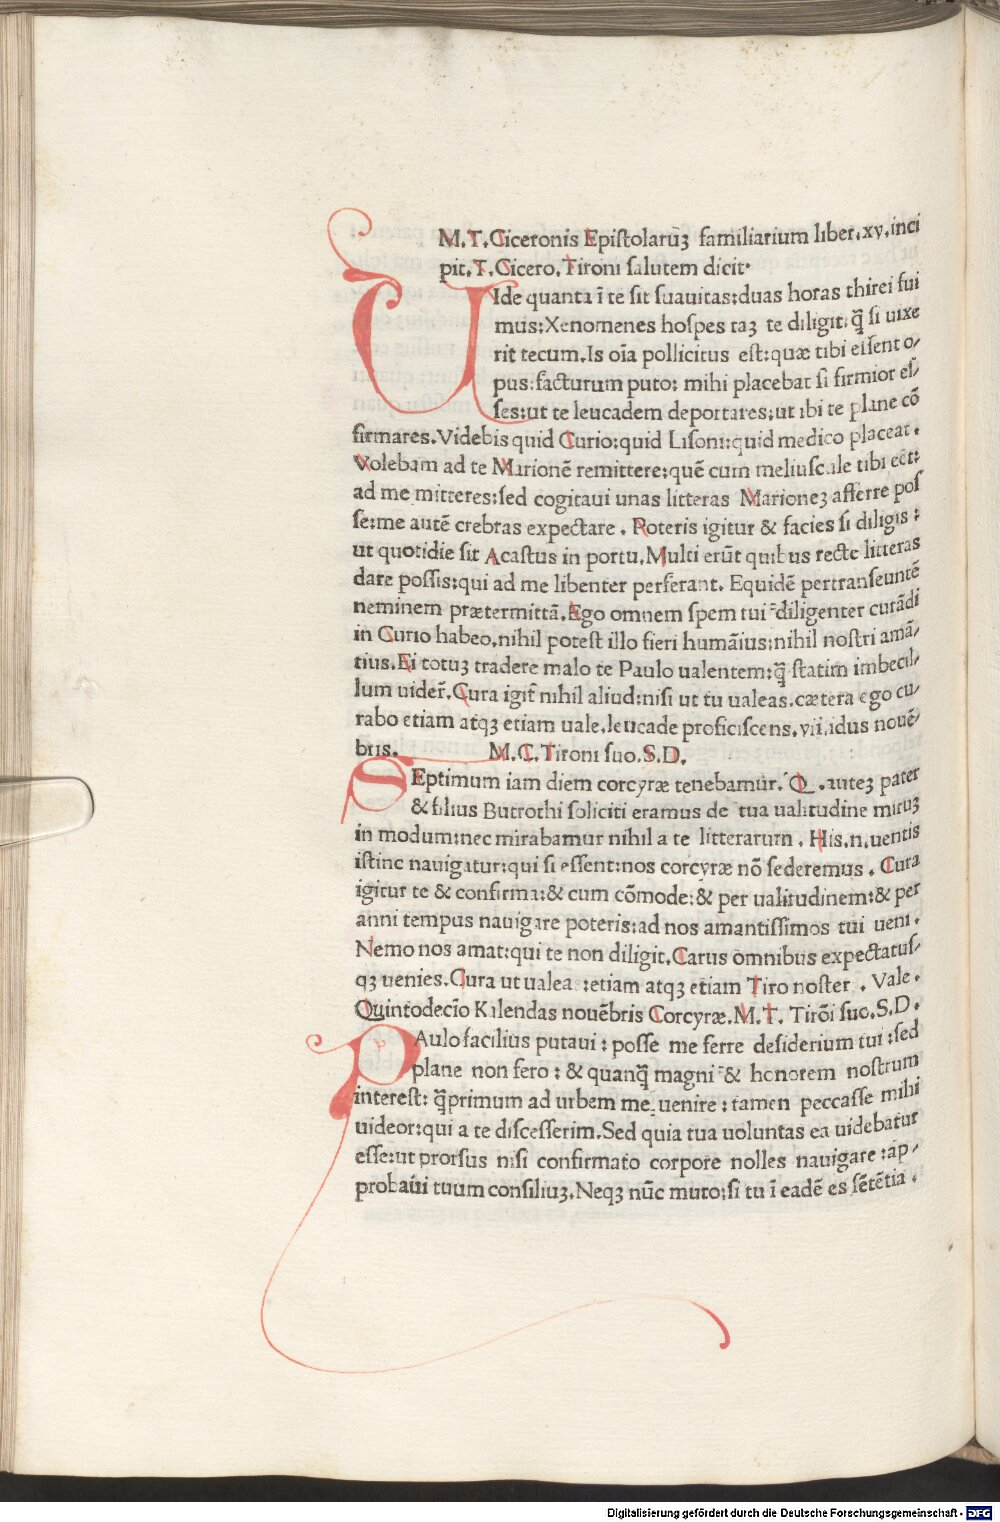 M.T.Ciceronis Epistolaruꝫ familiarium liber.xv.inci
pit.T.Cicero.Tironi salutem dicit·
UIde quanta ī te sit suauitas:duas horas thirei fui
mus:Xenomenes hospes taꝫ te diligit:q̄ si uixe
rit tecum.Is oīa pollicitus est:quæ tibi essent o-
pus:facturum puto: mihi placebat si firmior eſ-
ses:ut te leucadem deportares:ut ibi te plane cō
firmares.Videbis quid Curio:quid Lisoni:quid medico placeat.
Volebam ad te Marionē remittere:quē cum meliuscule tibi eēt:
ad me mitteres:sed cogitaui unas litteras Marioneꝫ afferre pos
se:me autē crebras expectare. Poteris igitur & facies si diligis:
ut quotidie sit Acastus in portu.Multi erūt quibus recte litteras
dare possis:qui ad me libenter perferant. Equidē pertranseuntē
neminem prætermittā.Ego omnem spem tui diligenter curādi
in Curio habeo.nihil potest illo fieri humāius:nihil nostri amā-
tius.Ei totuꝫ tradere malo te Paulo ualentem:q̄ statim imbecil-
lum uider̄.Cura igit̄ nihil aliud:nisi ut tu ualeas.cætera ego cu-
rabo etiam atqꝫ etiam uale.leucade proficiscens.vii.idus nouē-
bris. M.C.Tironi suo.S.D.
SEptimum iam diem corcyræ tenebamur. Q. auteꝫ pater
& filius Butrothi soliciti eramus de tua ualitudine miruꝫ
in modum:nec mirabamur nihil a te litterarum. His.n.uentis
istinc nauigatur:qui si essent:nos corcyræ nō sederemus. Cura
igitur te & confirma:& cum cōmode:& per ualitudinem:& per
anni tempus nauigare poteris:ad nos amantissimos tui ueni.
Nemo nos amat:qui te non diligit.Carus omnibus expectatuſ-
qꝫ uenies.Cura ut ualeas:etiam atqꝫ etiam Tiro noster. Vale.
Quintodecīo Kalendas nouēbris Corcyræ.M.T. Tirōi suo.S.D.
PAulo facilius putaui: posse me ferre desiderium tui:sed
plane non fero: & quanq̄ magni & honorem nostrum
interest: q̄primum ad urbem me uenire: tamen peccasse mihi
uideor:qui a te discesserim.Sed quia tua uoluntas ea uidebatur
esse:ut prorsus nisi confirmato corpore nolles nauigare:ap-
probaui tuum consiliuꝫ.Neqꝫ nūc muto:si tu ī eadē es sētētia.
Digitalisierung gefördert durch die Deutsche Forschungsgemeinschaft - DFG